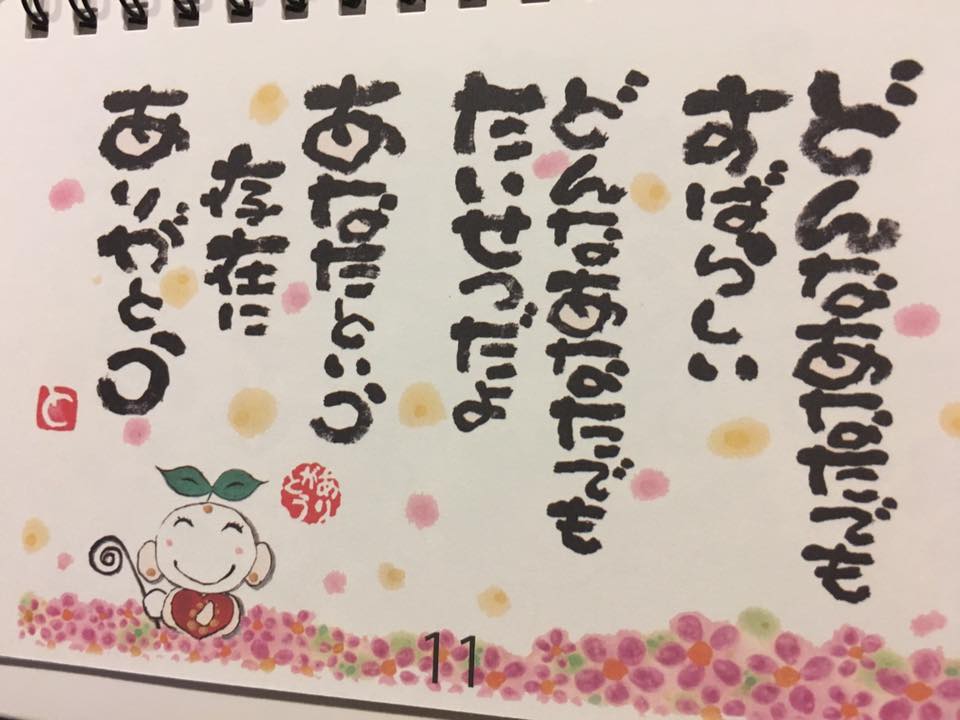 どんなあなたでも
すばらしい
どんなあなたでも
たいせつだよ
あなたという
存在に
ありがとう
と
ありがとう
11